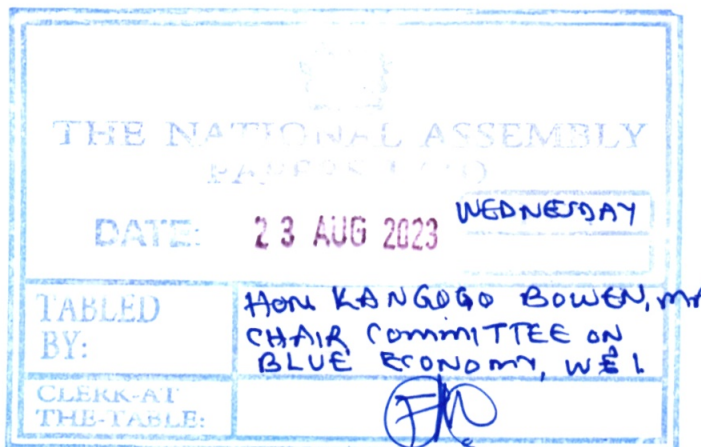 THE NATIONAL ASSEMBLY
PAPERS LAID
DATE: 23 AUG 2023 WEDNESDAY
TABLED BY: HON KANGOGO BOWEN, MP
CHAIR COMMITTEE ON
BLUE ECONOMY, W & I
CLERK-AT
THE-TABLE: